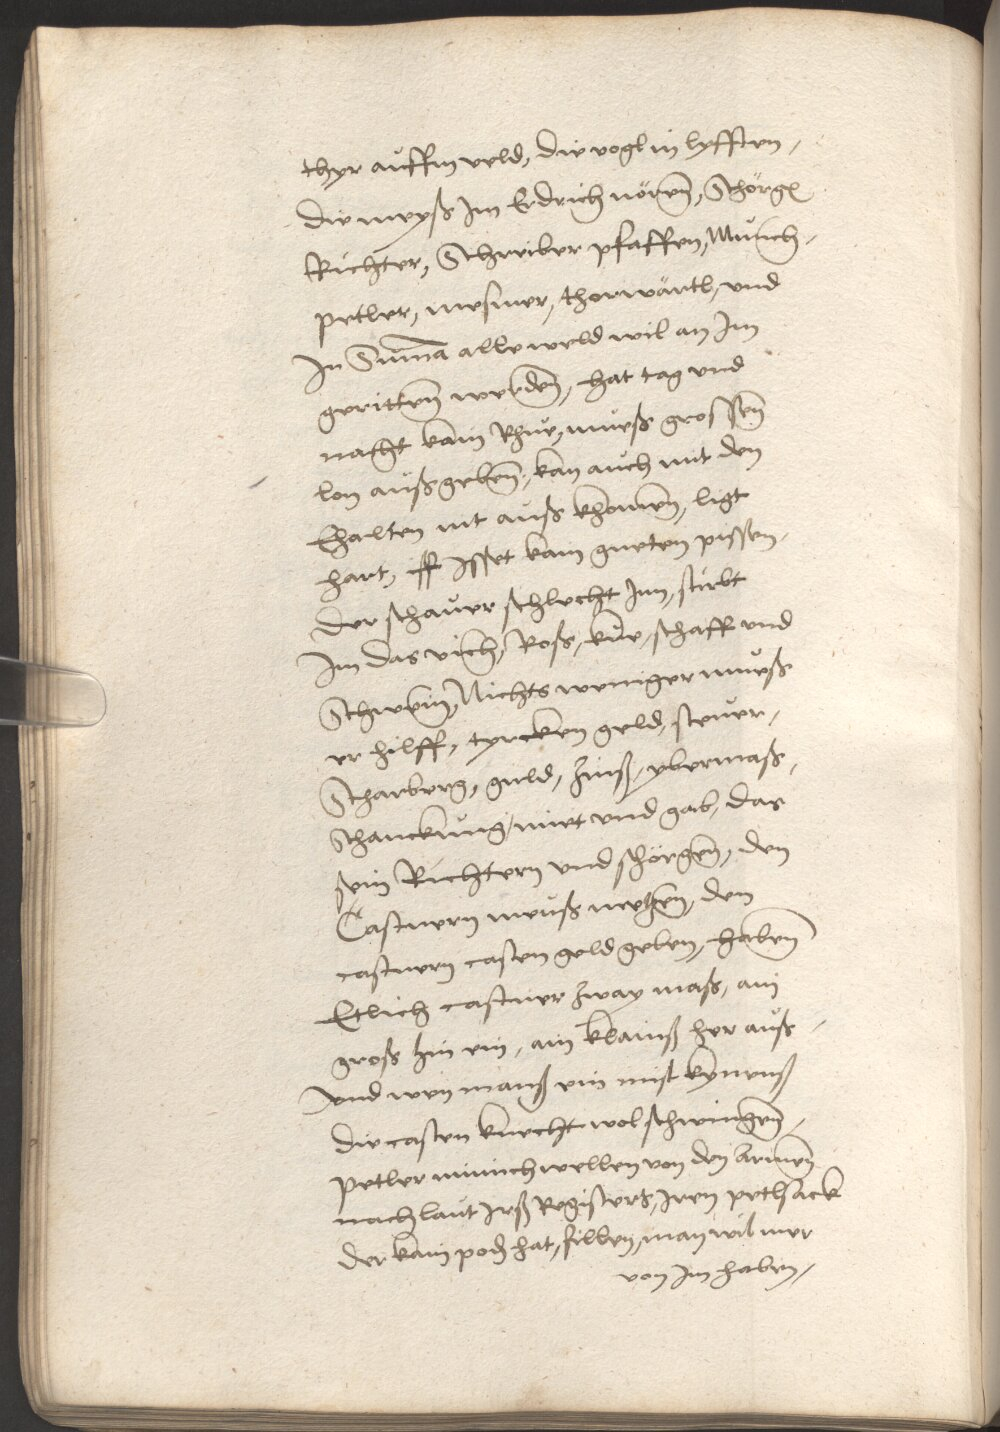 thyr auff'm veld, die vogl in lyfften,
die meyß Im Erdrich nören, Schörgen
Richter, Schreiber pfaffen, Münch,
petler, mesmer, thorwärtl, und
In Suma alle weld wil an Im
geritten werden, hat tag und
nacht kain Rhue, mueß grossen
lon außgeben, kan auch mit den
Ehalten nit auß khomen, ligt
hart, Isset kain gueten pissen,
der schauer schlecht Im, stirbt
Im das vich, Roß, kue, schaff und
Schwein, Nichts weniger mueß
er hilff, tyrcken geld, steuer,
Scharberg, guld, Zinß, ybermaß,
schanckung, miet und gab, das
sein Richtern und schörgen, den
Castnern mueß netzen, den
castnern casten geld geben, haben
Etlich castner zway maß, ain
groß hin ein, ain klainß her auß
und wen manß ein mist kynenß
die casten knecht wol schwingen,
petler münich wellen von den armen
nach laut Irß Registers, Iren petlsack
der kain poden hat, fillen, man wil mer
von Im haben,